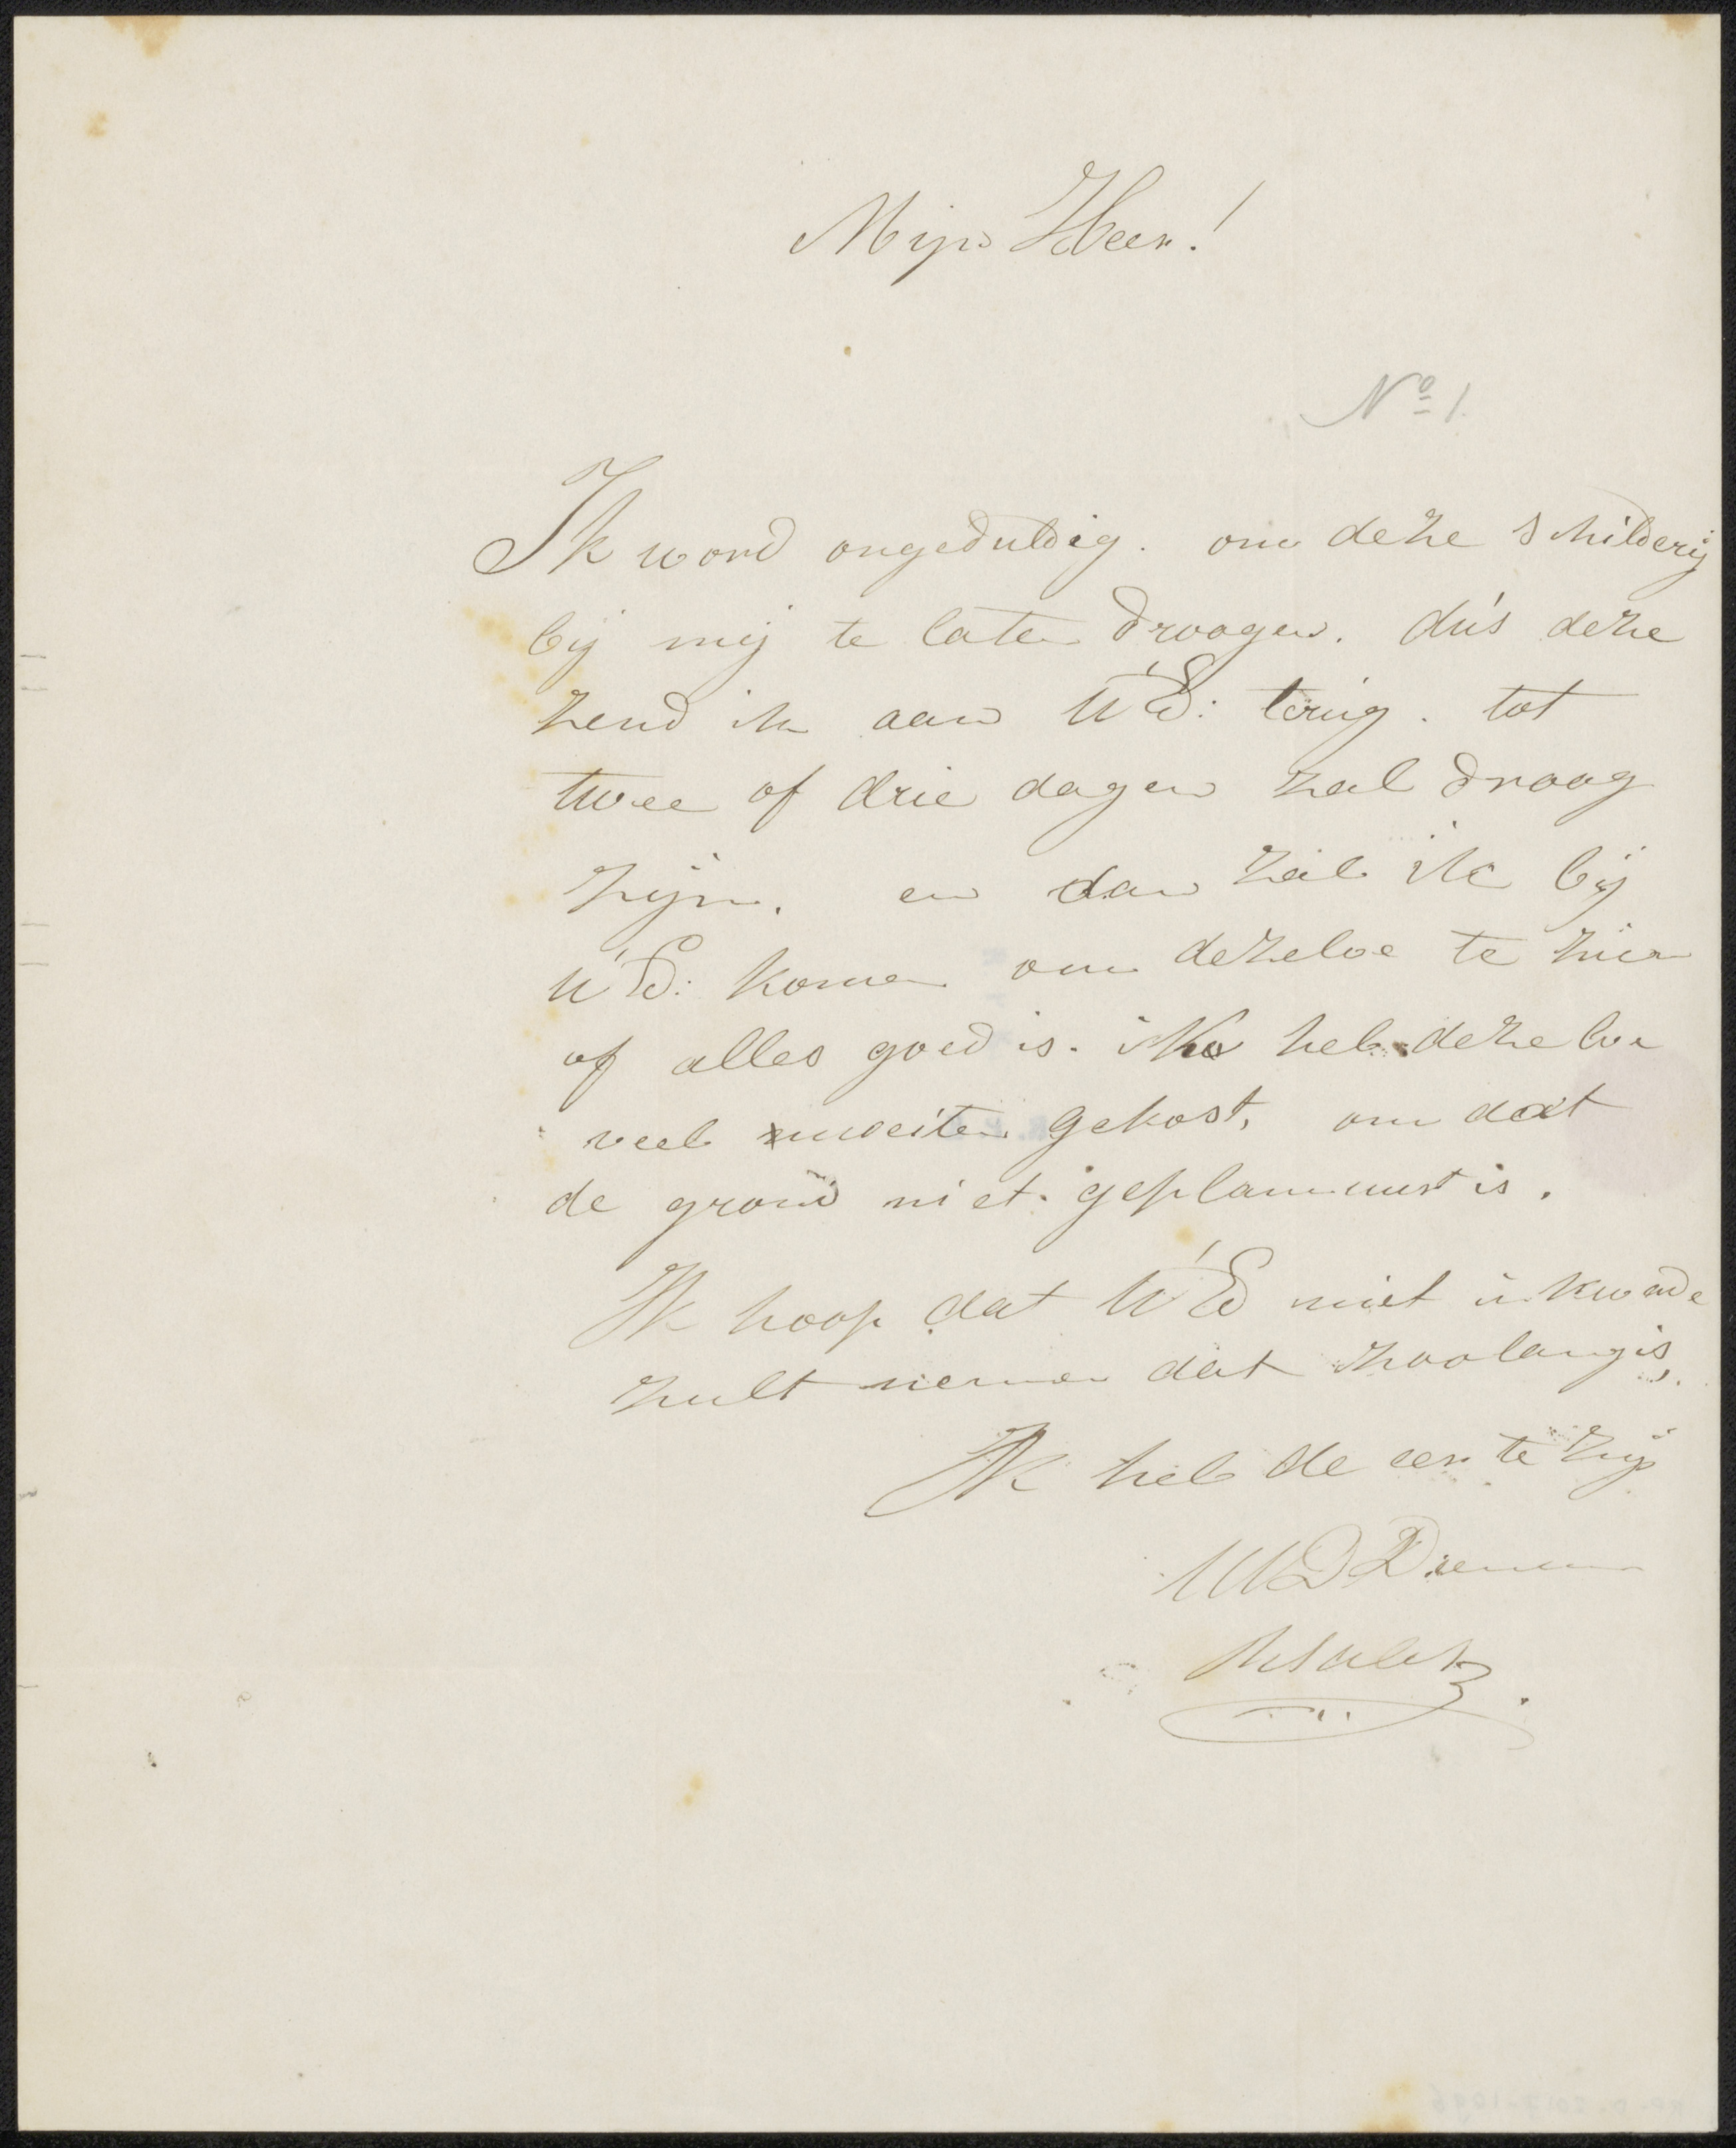 Mijn Heer!
No 1
Ik word ongeduldig. om deze schilderij
bij mij te laten droogen. dus deze
zend ik aan UEd: terug. tot
twee of drie dagen zal droog
zijn. en dan zal ik bij
UEd: komen om dezelve te zien
of alles goed is. ik heb dezelve
veel moeiten gekost, om dat
de grond niet geplammuurt is.
Ik hoop dat UEd niet in kwade
zult nemen dat zoolang is,
Ik heb de eer te zijn
UED Dienaar